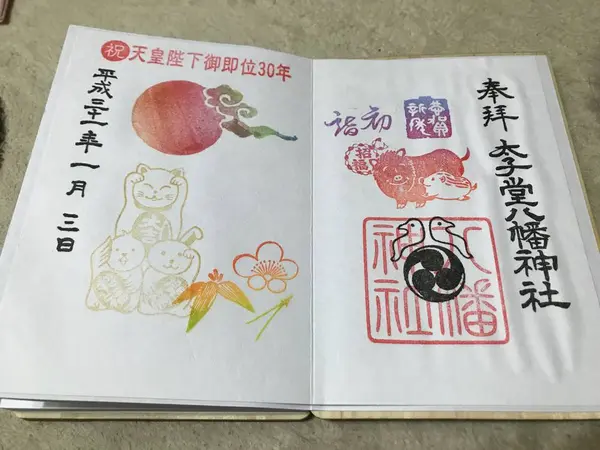 奉拝
太子堂八幡神社
初詣
恭賀
招福
八幡
神社
祝 天皇陛下御即位30年
平成三十一年一月三日